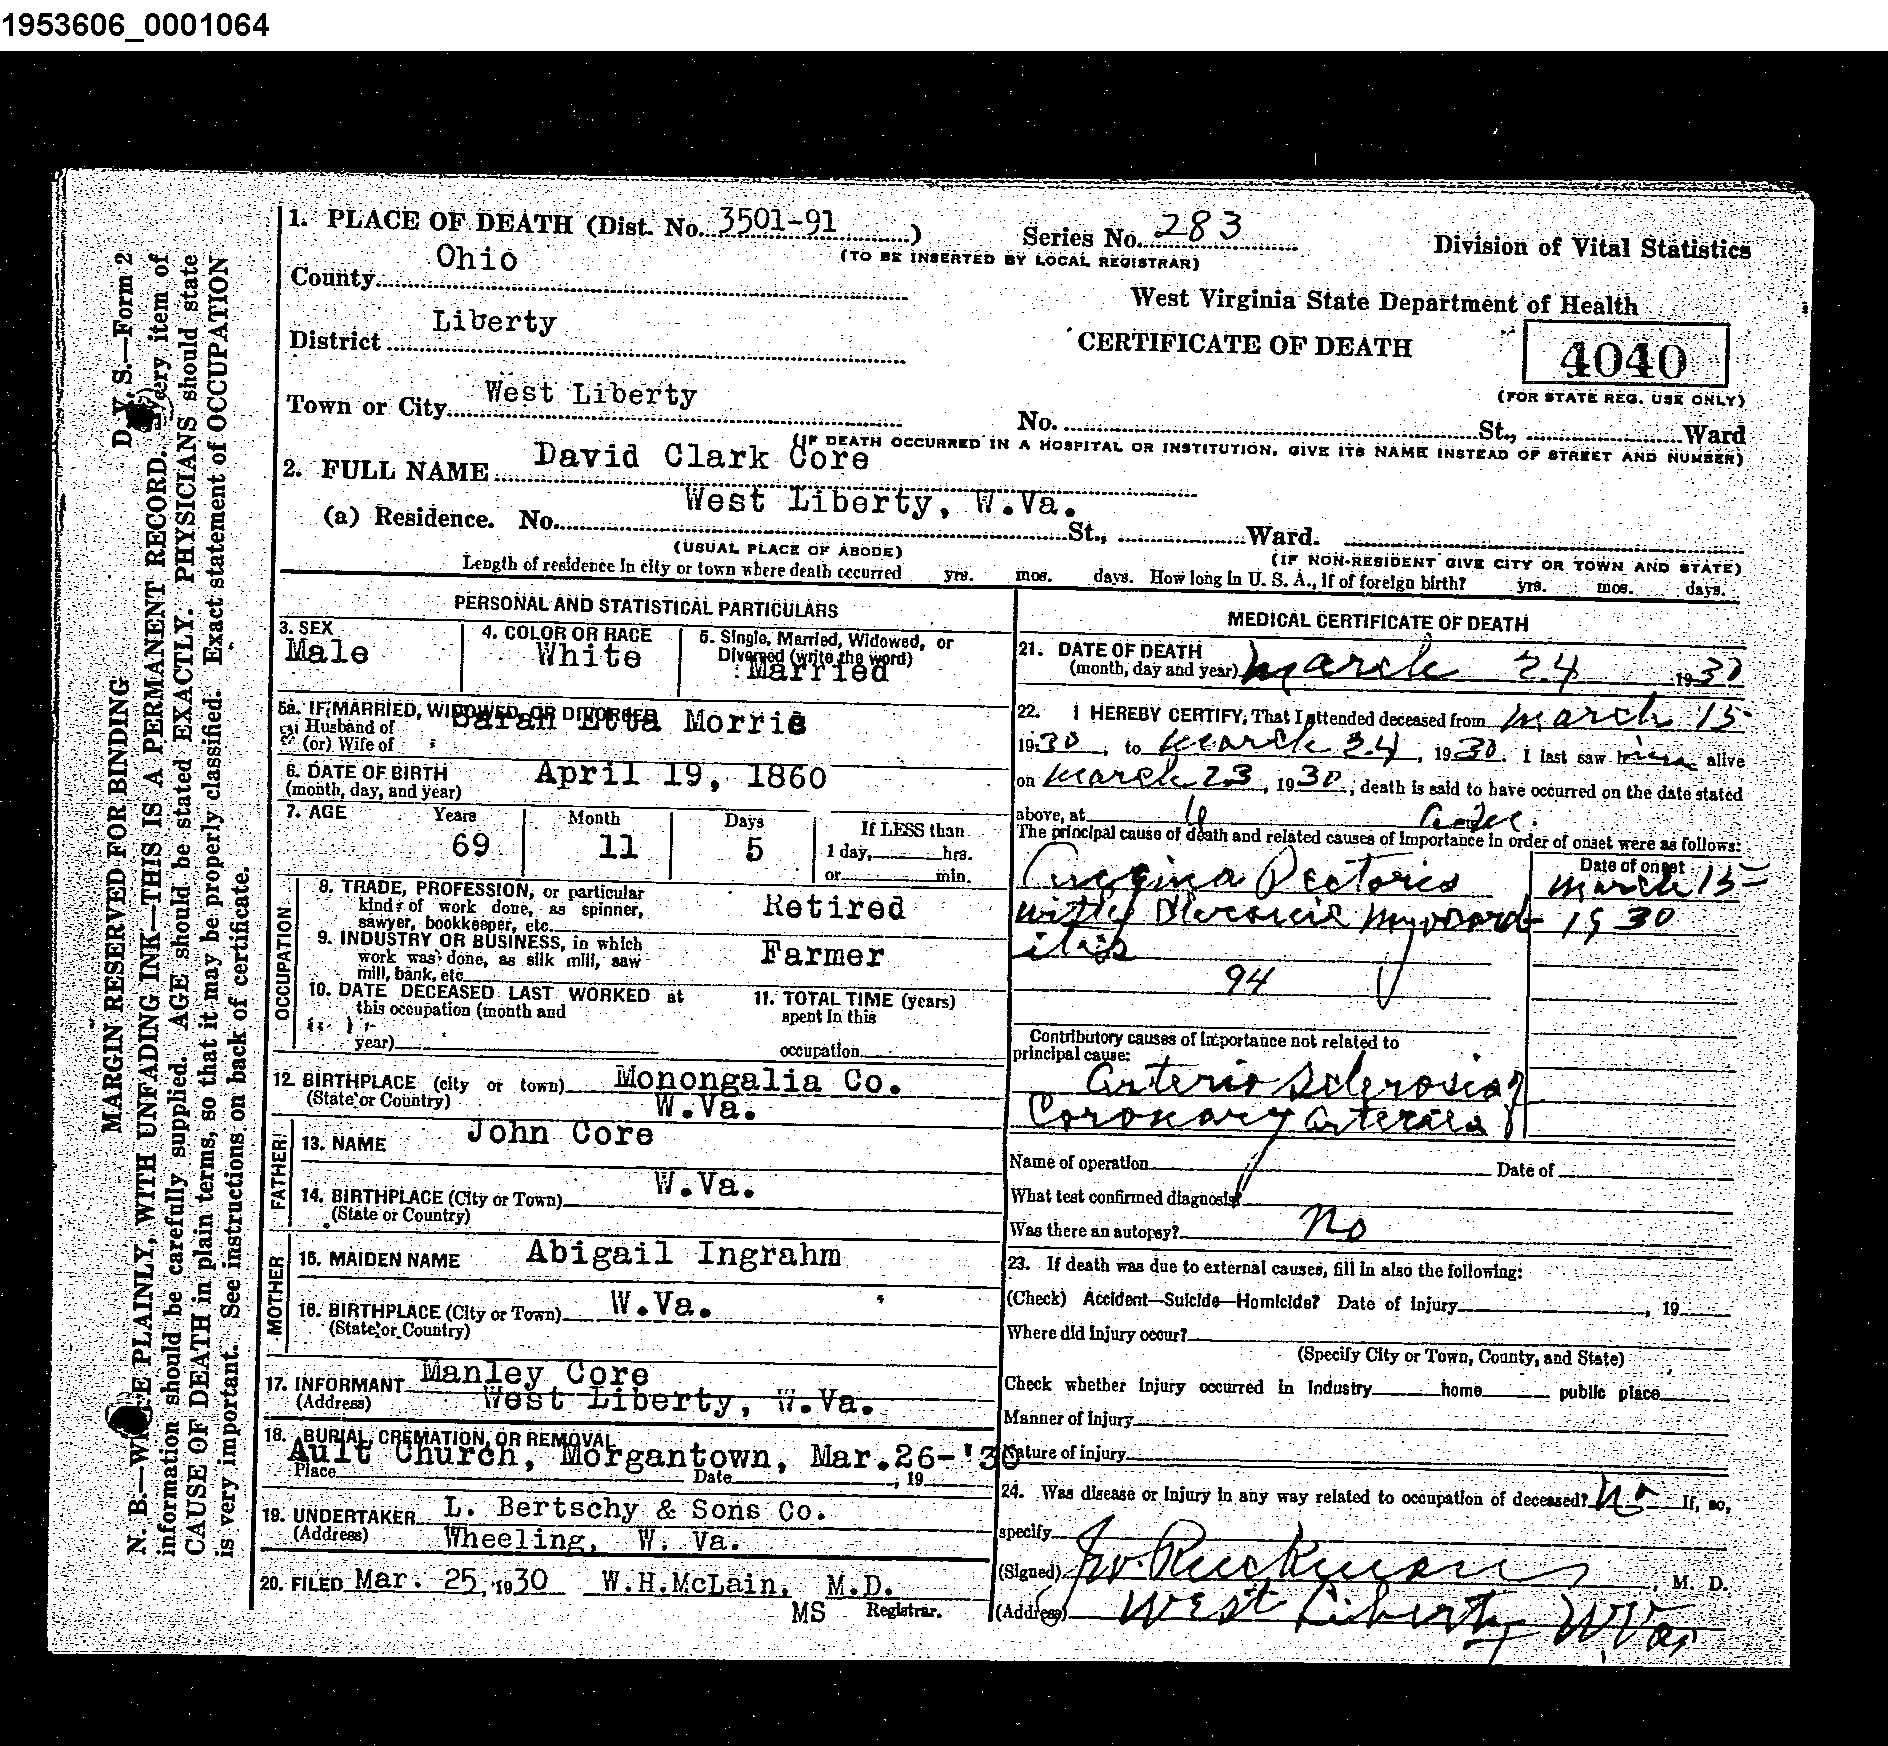 1953606_0001064
1. PLACE OF DEATH (Dist. No. 3501-91 )
Series No. 283
(TO BE INSERTED BY LOCAL REGISTRAR)
Division of Vital Statistics
County Ohio
West Virginia State Department of Health
District Liberty
CERTIFICATE OF DEATH
4040
(FOR STATE REG. USE ONLY)
Town or City West Liberty
No. St., Ward
(IF DEATH OCCURRED IN A HOSPITAL OR INSTITUTION, GIVE ITS NAME INSTEAD OF STREET AND NUMBER)
2. FULL NAME David Clark Core
(a) Residence. No. West Liberty, W.Va. St., Ward.
(USUAL PLACE OF ABODE)
(IF NON-RESIDENT GIVE CITY OR TOWN AND STATE)
Length of residence in city or town where death occurred yrs. mos. days. How long in U. S. A., if of foreign birth? yrs. mos. days.
PERSONAL AND STATISTICAL PARTICULARS
3. SEX
Male
4. COLOR OR RACE
White
5. Single, Married, Widowed, or
Divorced (write the word)
Married
5a. IF MARRIED, WIDOWED, OR DIVORCED
Sarah Etta Morris
Husband of
(or) Wife of
6. DATE OF BIRTH April 19, 1860
(month, day, and year)
7. AGE Years Month Days If LESS than
69 11 5 1 day, hrs.
or min.
OCCUPATION
8. TRADE, PROFESSION, or particular
kind of work done, as spinner,
sawyer, bookkeeper, etc. Retired
9. INDUSTRY OR BUSINESS, in which
work was done, as silk mill, saw
mill, bank, etc. Farmer
10. DATE DECEASED LAST WORKED at
this occupation (month and
year)
11. TOTAL TIME (years)
spent in this
occupation
12. BIRTHPLACE (city or town) Monongalia Co.
(State or Country) W.Va.
FATHER
13. NAME John Core
14. BIRTHPLACE (City or Town) W.Va.
(State or Country)
MOTHER
15. MAIDEN NAME Abigail Ingrahm
16. BIRTHPLACE (City or Town) W.Va.
(State or Country)
17. INFORMANT Manley Core
(Address) West Liberty, W.Va.
18. BURIAL, CREMATION, OR REMOVAL
Ault Church, Morgantown, Mar.26-'30
Place Date , 19
19. UNDERTAKER L. Bertschy & Sons Co.
(Address) Wheeling, W. Va.
20. FILED Mar. 25, 1930 W.H.McLain, M.D.
MS Registrar.
MEDICAL CERTIFICATE OF DEATH
21. DATE OF DEATH
(month, day and year) March 24 1930
22. I HEREBY CERTIFY, That I attended deceased from March 15
1930, to March 24, 1930. I last saw him alive
on March 23, 1930; death is said to have occurred on the date stated
above, at
The principal cause of death and related causes of importance in order of onset were as follows:
Date of onset
Angina Pectoris March 15
with Chronic Myocard- 1930
itis
94
Contributory causes of importance not related to
principal cause:
Arterio Sclerosis of
Coronary Arteries
Name of operation Date of
What test confirmed diagnosis?
Was there an autopsy? No
23. If death was due to external causes, fill in also the following:
(Check) Accident—Suicide—Homicide? Date of injury , 19
Where did injury occur?
(Specify City or Town, County, and State)
Check whether injury occurred in Industry home public place
Manner of Injury
Nature of injury
24. Was disease or injury in any way related to occupation of deceased? No If, so,
specify
(Signed) Ruckman , M. D.
(Address) West Liberty W Va
D. V. S.—Form 2
MARGIN RESERVED FOR BINDING
N. B.—WRITE PLAINLY, WITH UNFADING INK—THIS IS A PERMANENT RECORD. Every item of
information should be carefully supplied. AGE should be stated EXACTLY. PHYSICIANS should state
CAUSE OF DEATH in plain terms, so that it may be properly classified. Exact statement of OCCUPATION
is very important. See instructions on back of certificate.